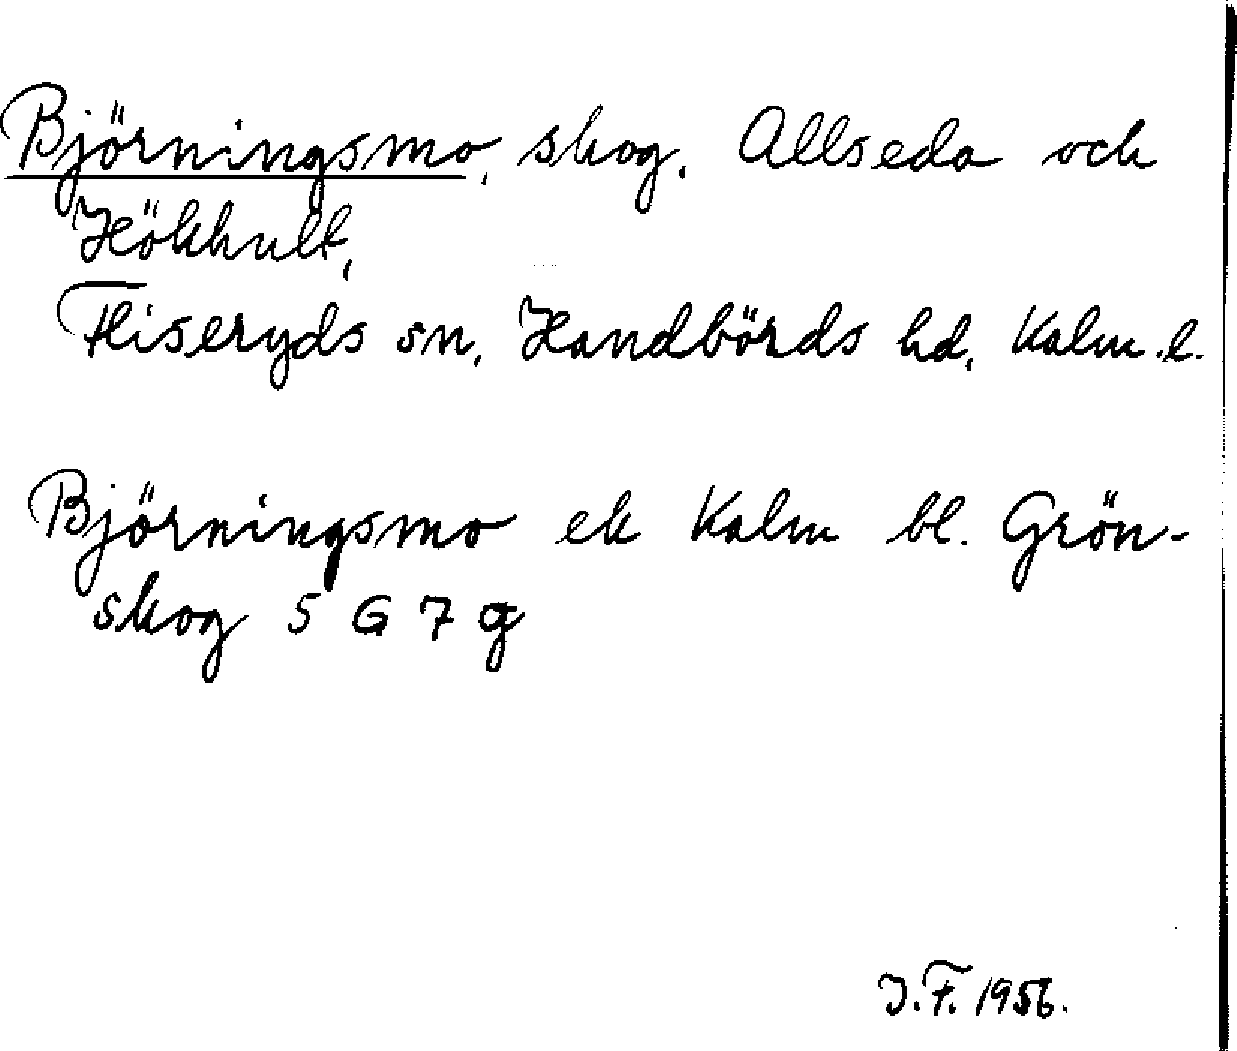 Björningsmo, skog, Allseda och
Hökhult,
Fliseryds sn, Handbörds hd, Kalm. l.
Björningsmo ek Kalm bl. Grön-
skog 5 G 7 g
J.F. 1956.